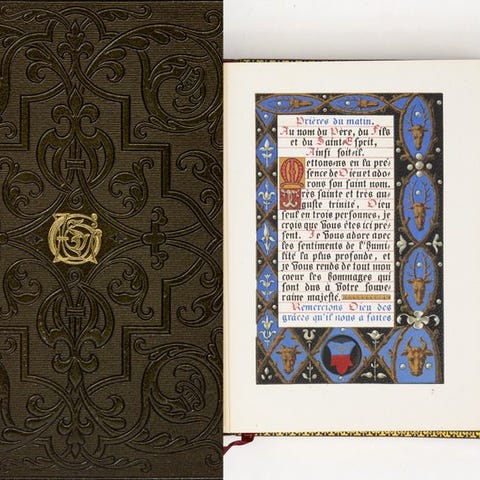 Prières du matin.
Au nom du Père, du Fils
et du Saint-Esprit,
Ainsi soit-il.
Mettons-ns en la pré
sence de Dieu et ado
rons son saint nom.
Très sainte et très au
guste trinité, Dieu
seul en trois personnes, je
crois que vous êtes ici pré
sent. Je vous adore avec
les sentiments de l'humili
té la plus profonde, et
je vous rends de tout mon
coeur les hommages qui
sont dûs à votre souve
raine majesté.
Remercions Dieu des
grâces qu'il nous a faites